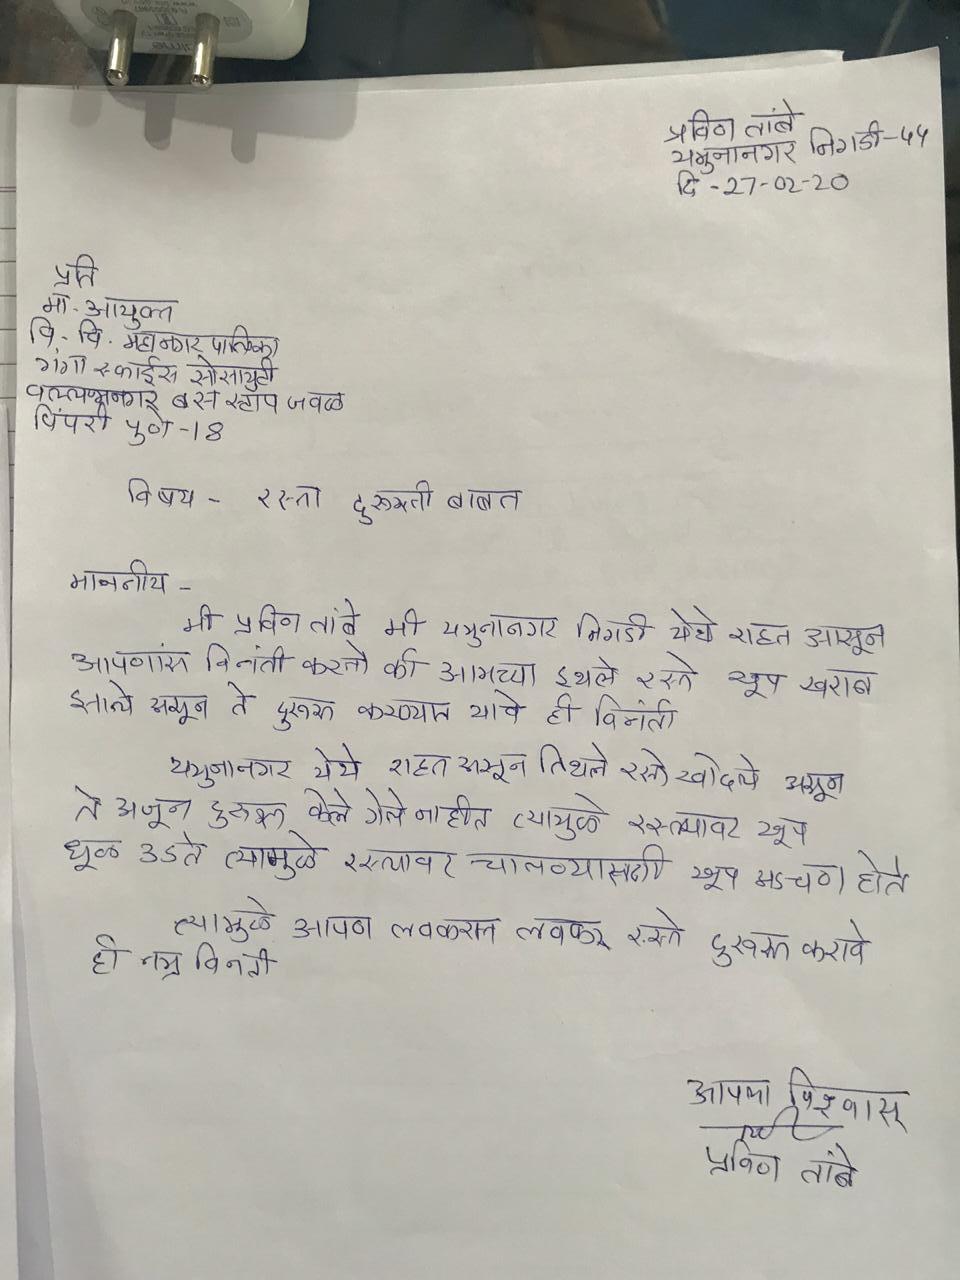 प्रविण तांबे
यमुनानगर निगडी-४४
दि -27-02-20
प्रति
मा. आयुक्त
पि. चि. महानगर पालिका
गंगा स्काईस सोसायटी
वल्लभनगर बस स्टाप जवळ
पिंपरी पुणे -18
विषय - रस्ता दुरूस्ती बाबत
माननीय -
मी प्रविण तांबे मी यमुनानगर निगडी येथे राहत आसून
आपणांस विनंती करतो की आमच्या इथले रस्ते खूप खराब
झाले असून ते दुरूस्त करण्यात यावे ही विनंती
यमुनानगर येथे राहत असून तिथले रस्ते खोदले असून
ते अजून दुरुस्त केले गेले नाहीत त्यामुळे रस्त्यावर खूप
धूळ उडते त्यामुळे रस्त्यावर चालण्यासाठी खूप अडचण होते
त्यामुळे आपण लवकरात लवकर रस्ते दुरुस्त करावे
ही नम्र विनंती
आपला विश्वासू
प्रविण तांबे